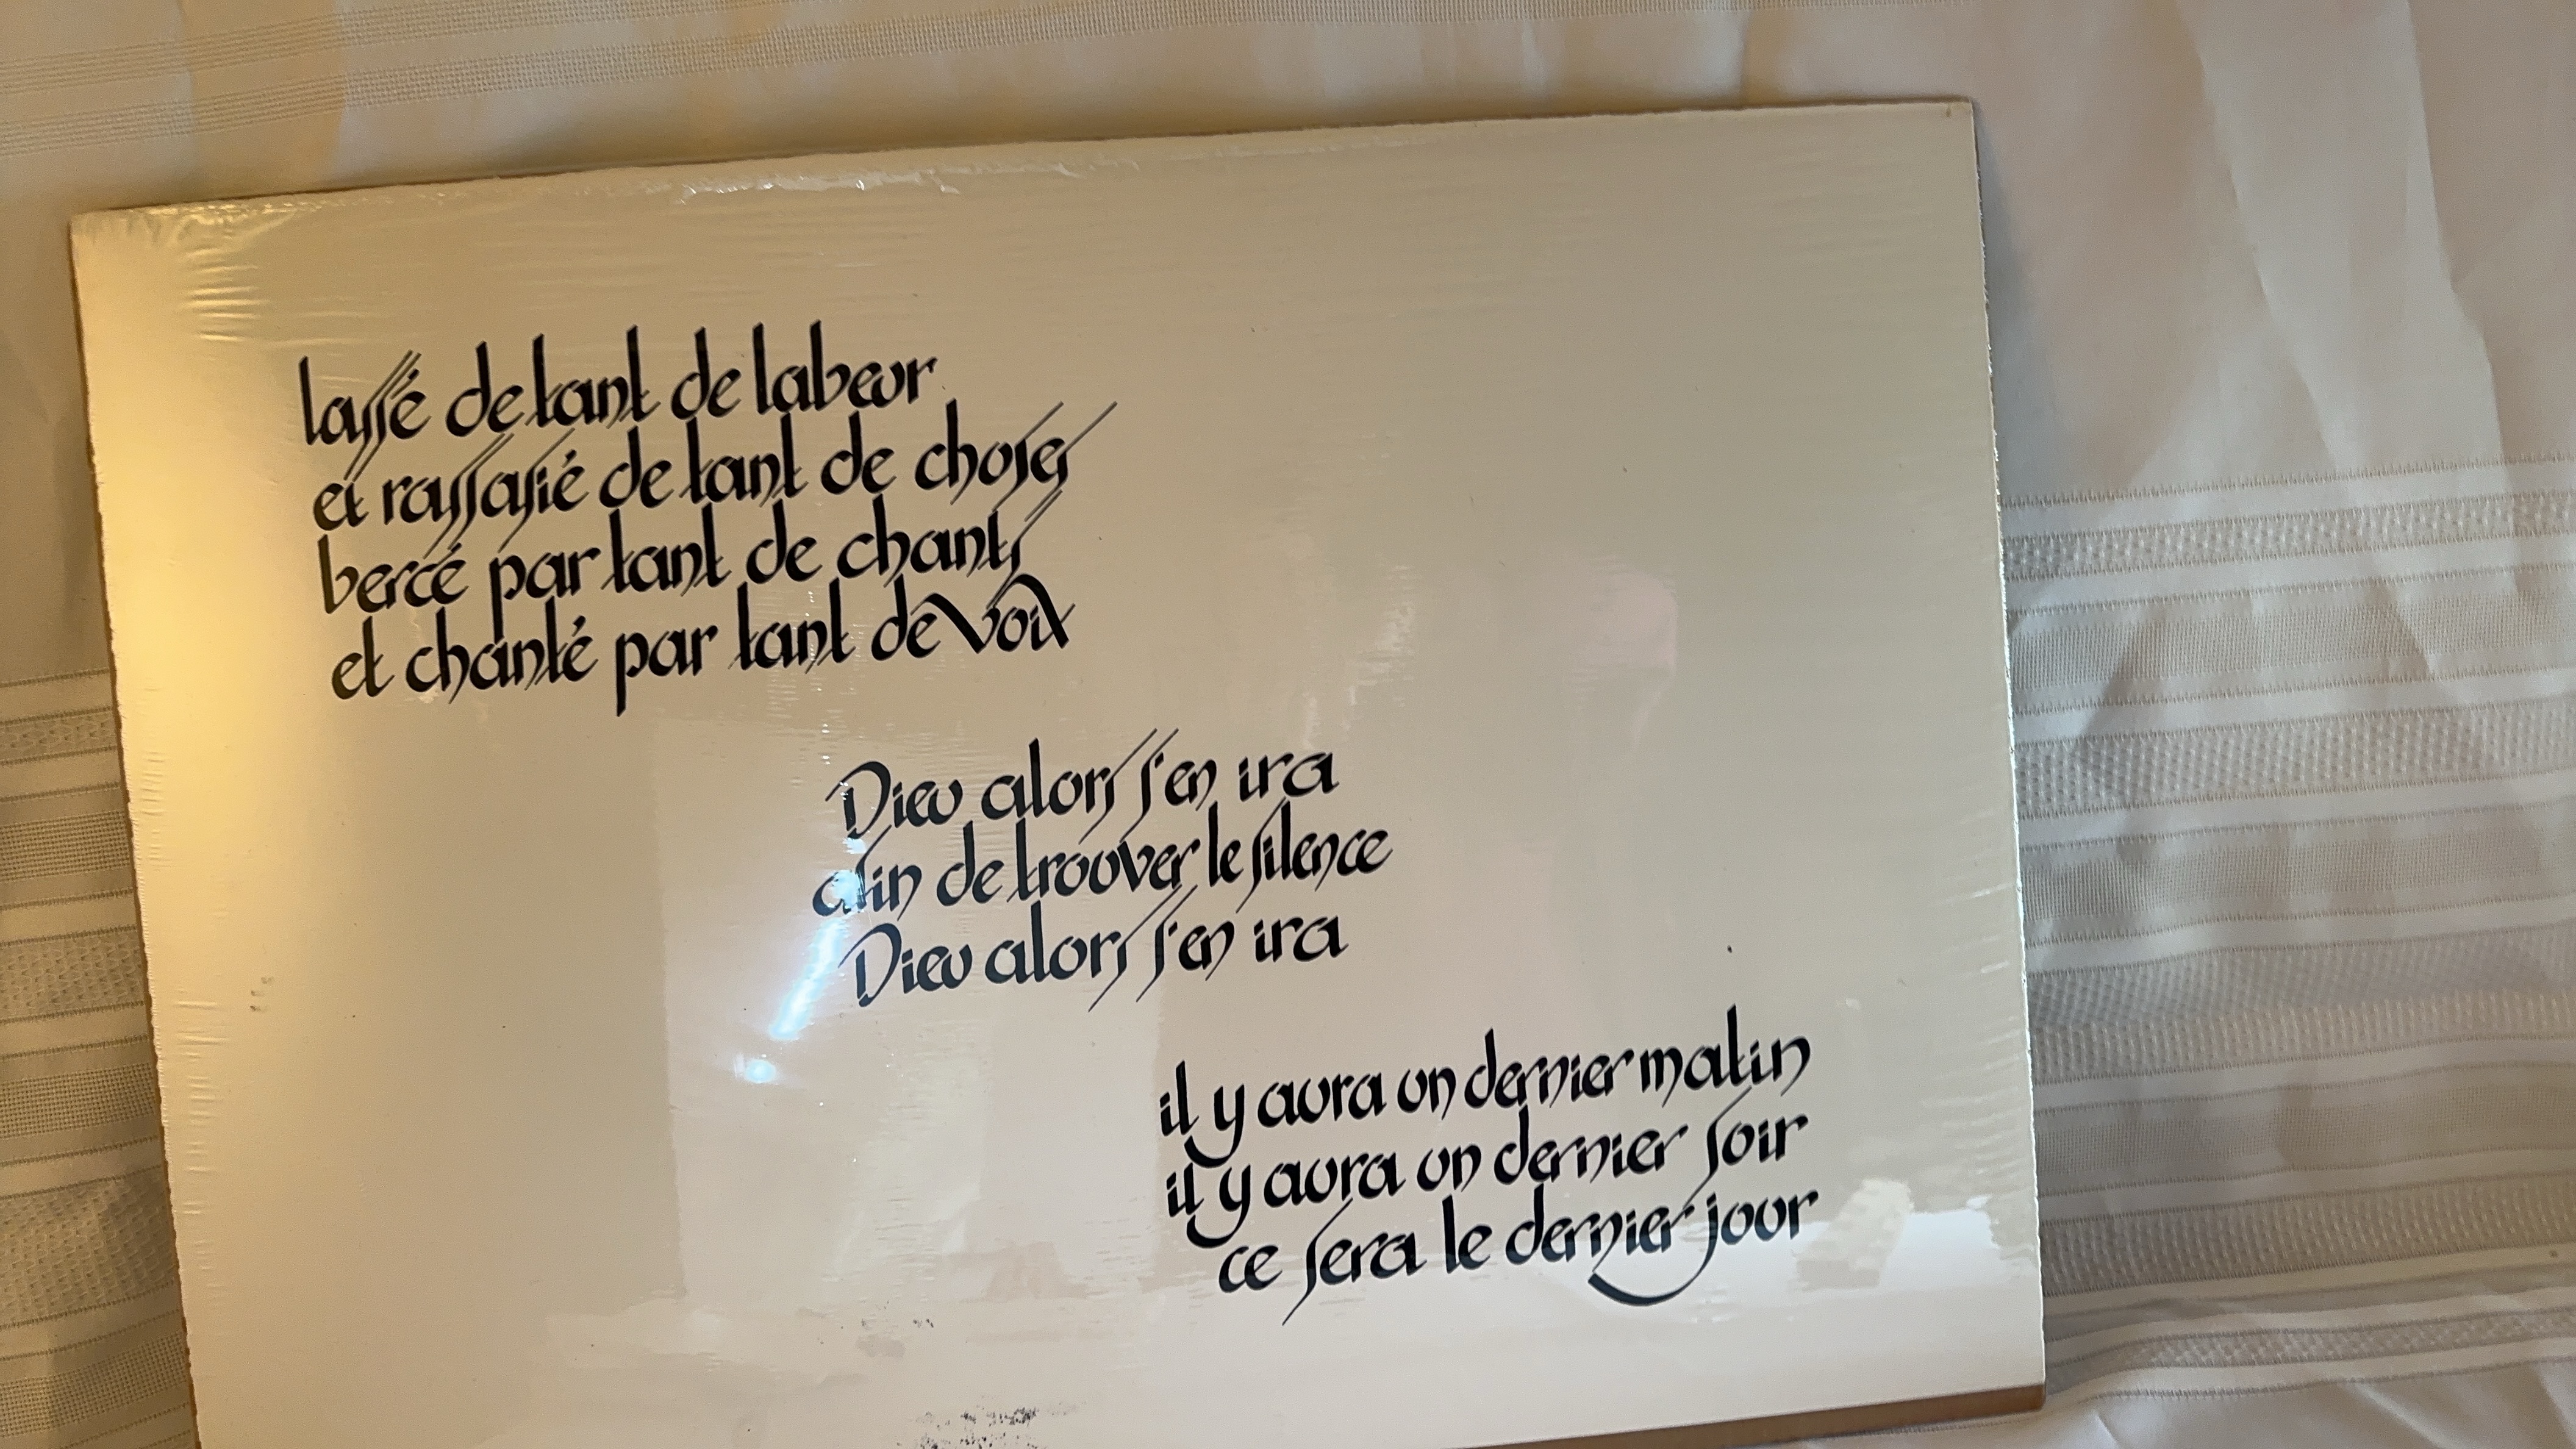 lassé de tant de labeur
et rassasié de tant de choses
bercé par tant de chants
et chanté par tant de voix
Dieu alors s'en ira
afin de trouver le silence
Dieu alors s'en ira
il y aura un dernier matin
il y aura un dernier soir
ce sera le dernier jour